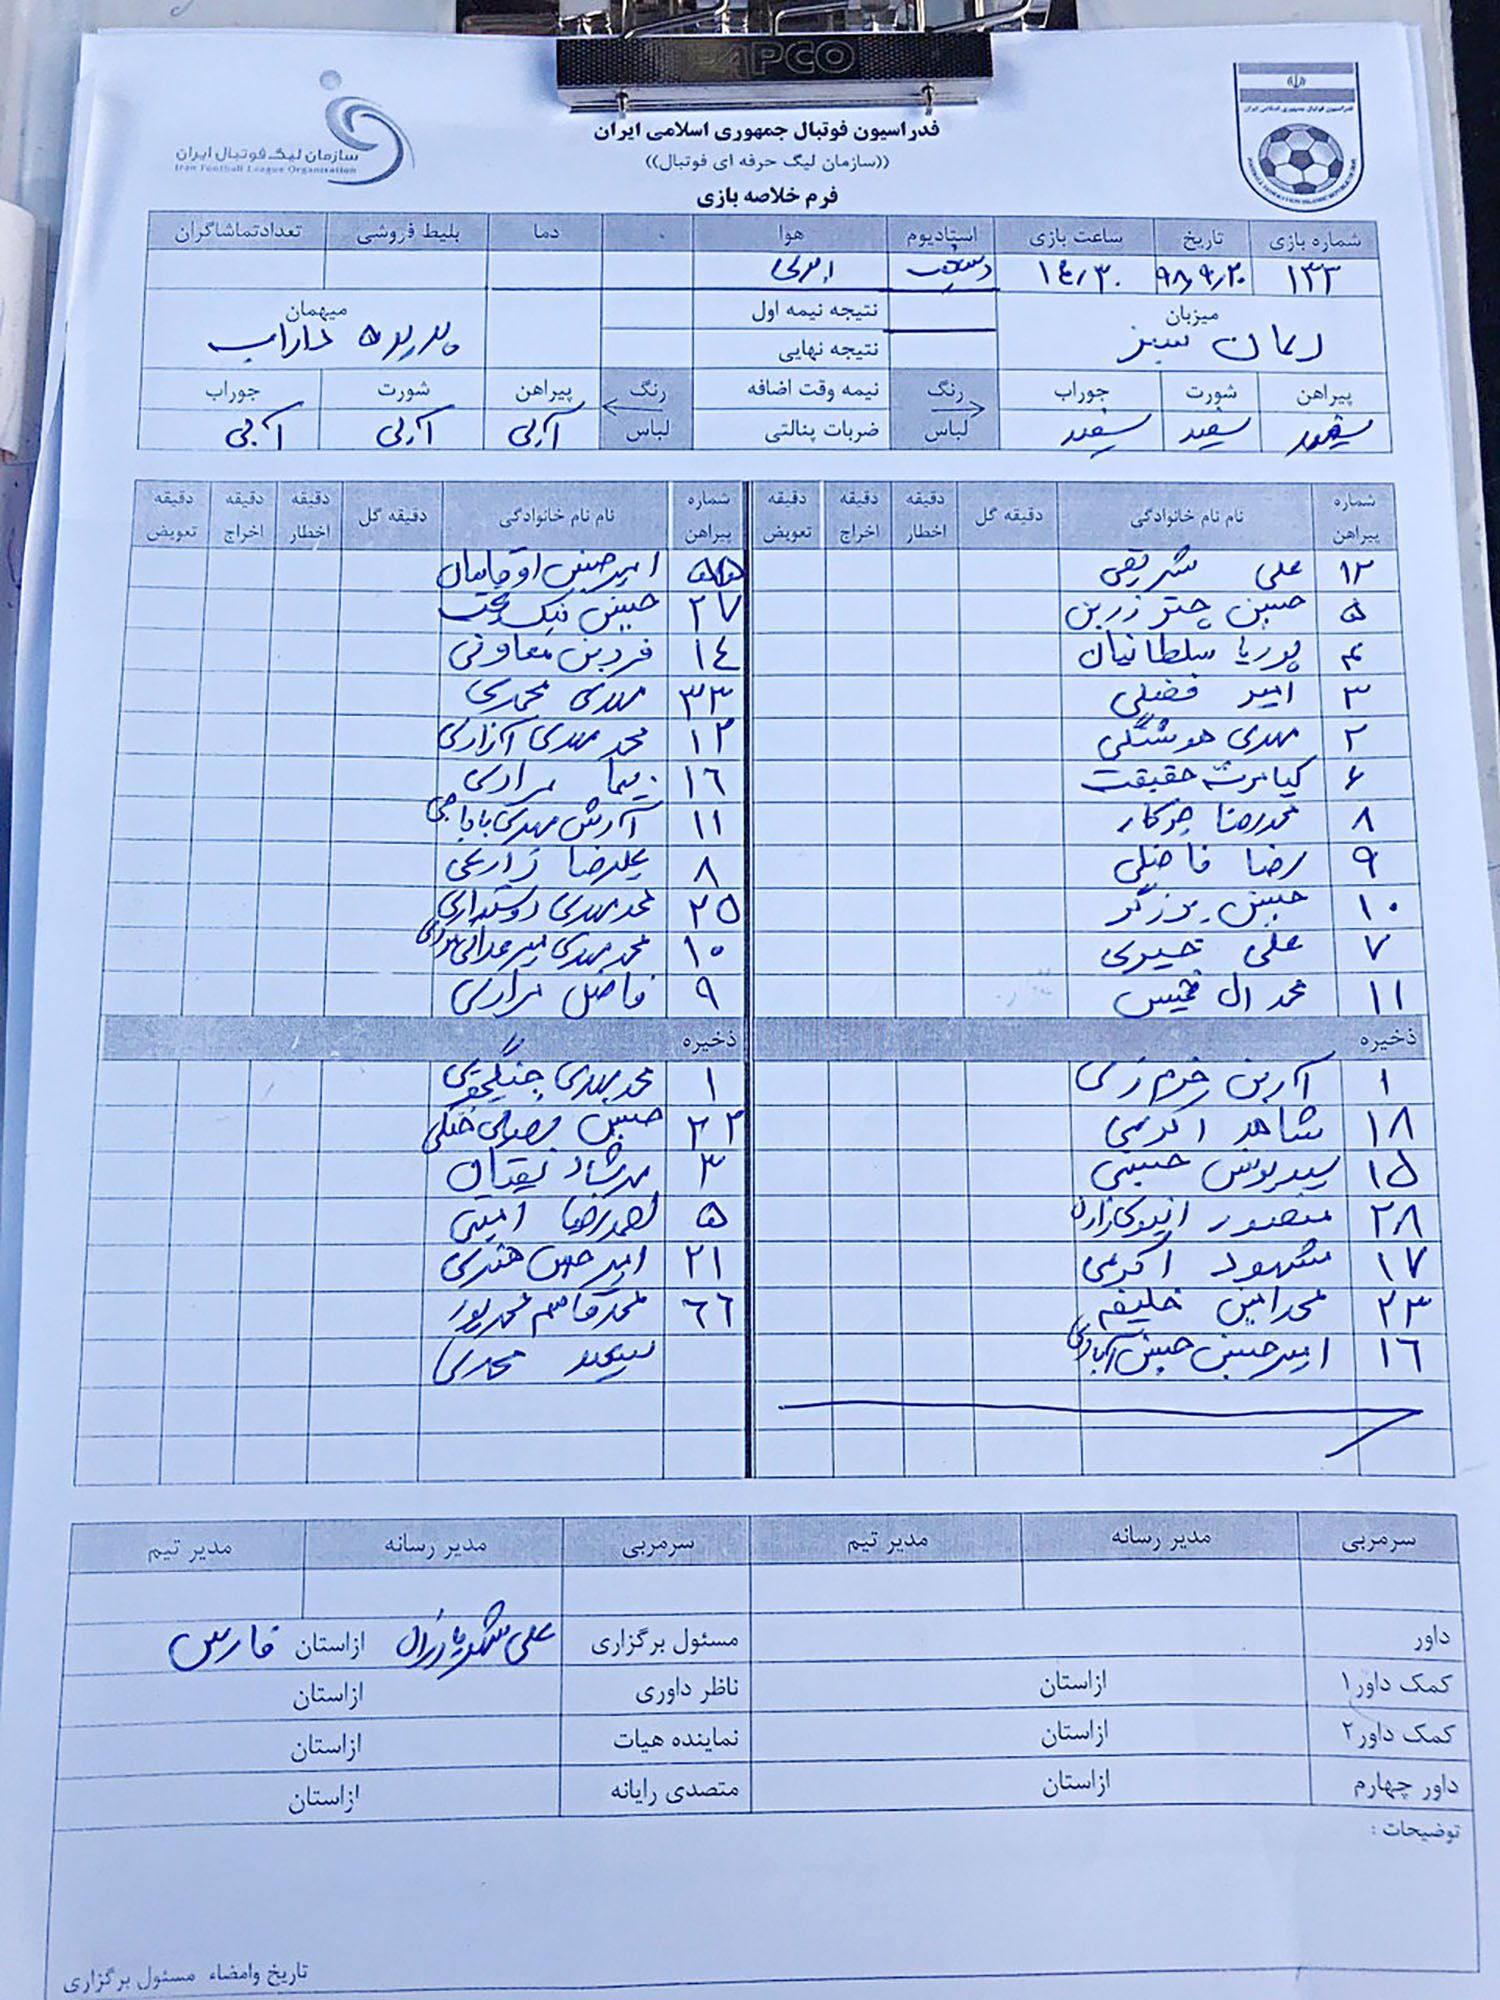 PAPCO
سازمان لیگ فوتبال ایران
Iran Football League Organisation
فدراسیون فوتبال جمهوری اسلامی ایران
فدراسیون فوتبال جمهوری اسلامی ایران
((سازمان لیگ حرفه ای فوتبال))
فرم خلاصه بازی
شماره بازی تاریخ ساعت بازی استادیوم هوا دما بلیط فروشی تعدادتماشاگران
۱۳۳ ۹۸٫۹٫۲۰ ۱۴٫۳۰ ابری
میزبان نتیجه نیمه اول میهمان
سبز داراب
نتیجه نهایی
پیراهن شورت جوراب رنگ نیمه وقت اضافه رنگ پیراهن شورت جوراب
سفید سفید سفید لباس ضربات پنالتی لباس آبی آبی آبی
شماره پیراهن نام نام خانوادگی دقیقه گل دقیقه اخطار دقیقه اخراج دقیقه تعویض شماره پیراهن نام نام خانوادگی دقیقه گل دقیقه اخطار دقیقه اخراج دقیقه تعویض
۱۲ علی شریفی ۵۵ امیرحسین
۵ حسین چتر زرین ۲۷ حسین نیک بخت
۴ پوریا سلطانیان ۱۴ فردین معاونی
۳ امیر فضلی ۳۳ مهدی محمدی
۲ مهدی هوشنگی ۱۲ محمد مهدی آزادی
۶ کیامرث حقیقت ۱۶ نیما مرادی
۸ محمدرضا ۱۱ آرش مهدی باباجی
۹ رضا فاضلی ۸ علیرضا زارعی
۱۰ حسین برزگر ۲۵ محمد مهدی دوستداری
۷ علی حیدری ۱۰ محمد مهدی
۱۱ محمد آل خمیس ۹ فاضل مرادی
ذخیره ذخیره
۱ آرین ۱ محمد مهدی
۱۸ شاهد اکرمی ۲۲ حسین
۱۵ سید یونس حسینی ۳ مهرشاد
۲۸ منصور ۵ احمدرضا امینی
۱۷ مشهود اکرمی ۲۱ امیرحسین هنری
۲۳ محمد امین خلیفه ۶۶ محمد قاسم محمدپور
۱۶ امیرحسین حسین آبادی سعید محمدی
سرمربی مدیر رسانه مدیر تیم سرمربی مدیر رسانه مدیر تیم
داور مسئول برگزاری علی ازاستان فارس
کمک داور۱ ازاستان ناظر داوری ازاستان
کمک داور۲ ازاستان نماینده هیات ازاستان
داور چهارم ازاستان متصدی رایانه ازاستان
توضیحات :
تاریخ وامضاء مسئول برگزاری